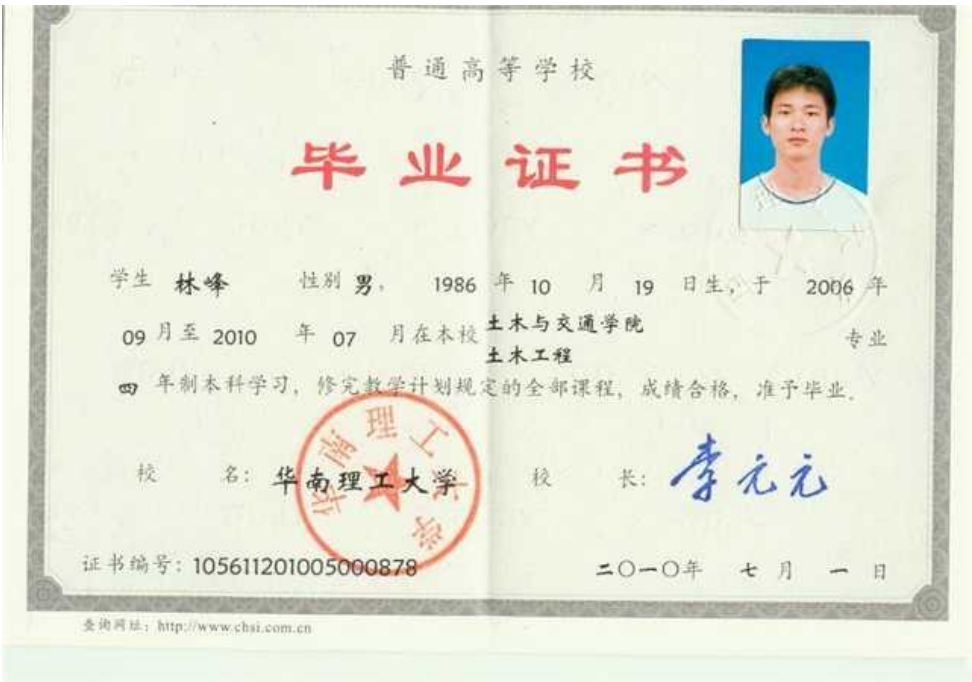 普通高等学校
毕业证书
学生 林峰 性别 男, 1986 年 10 月 19 日生, 于 2006 年
09 月至 2010 年 07 月在本校 土木与交通学院 土木工程 专业
四 年制本科学习, 修完教学计划规定的全部课程, 成绩合格, 准予毕业.
校 名: 华南理工大学 校 长: 李元元
华南理工大学
证书编号: 105611201005000878 二〇一〇年 七 月 一 日
查询网址: http://www.chsi.com.cn